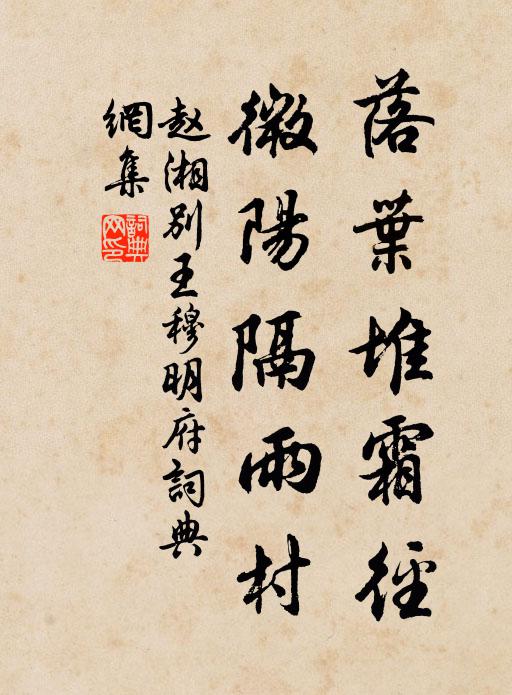 落葉堆霜徑
微陽隔雨村
赵湘别王穆明府詞典
網集
詞典
网印